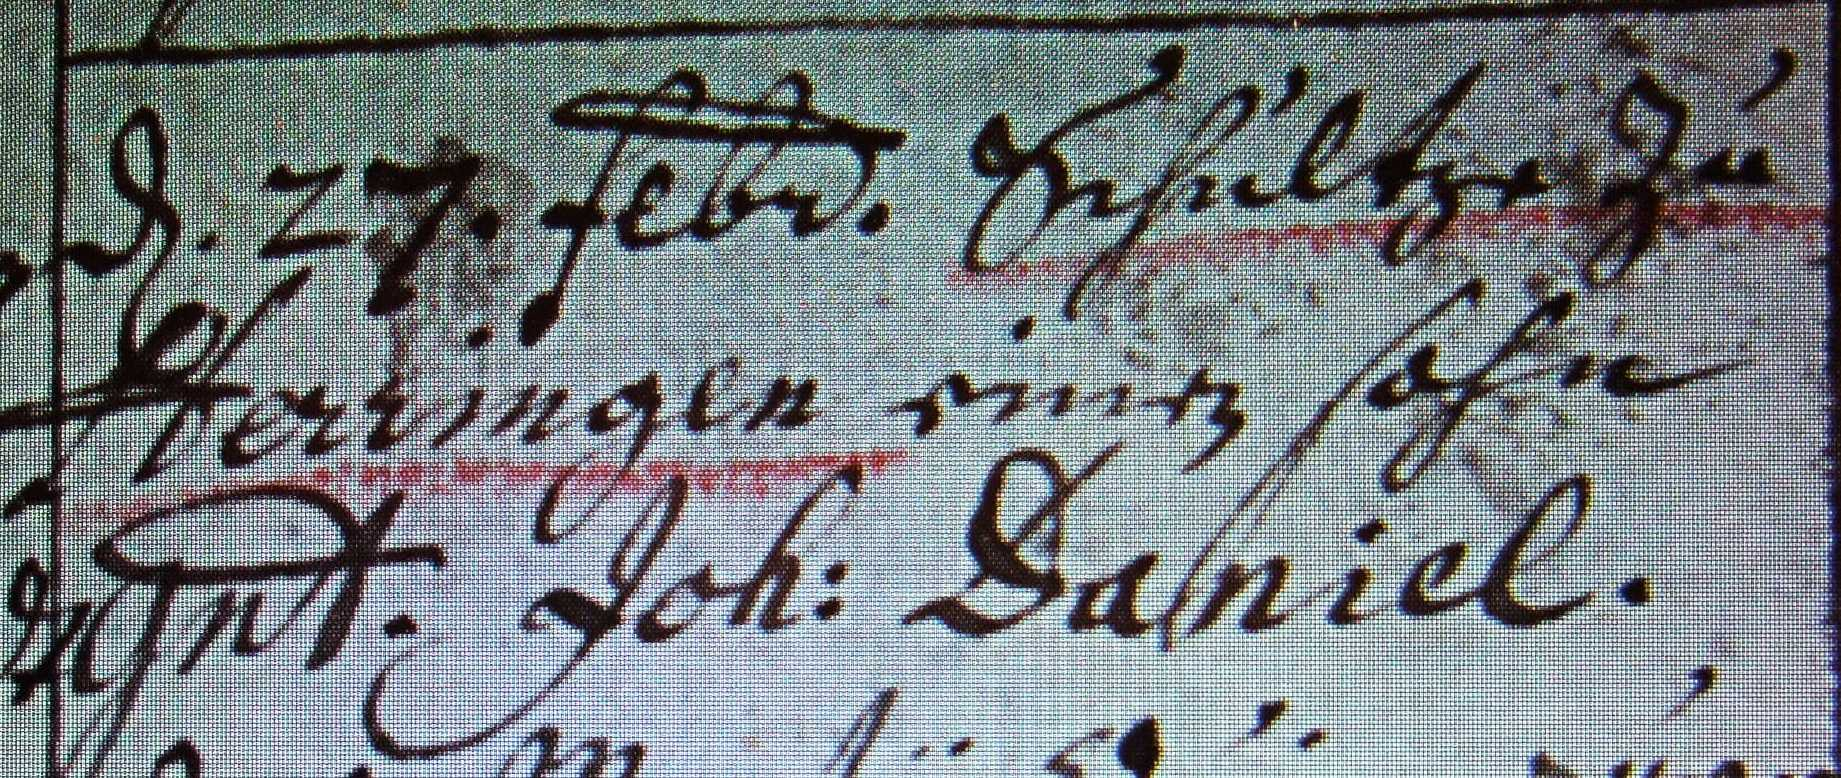 D. 27. febr. Schultze zu
Herringen einen sohn
gnt. Joh: Daniel.